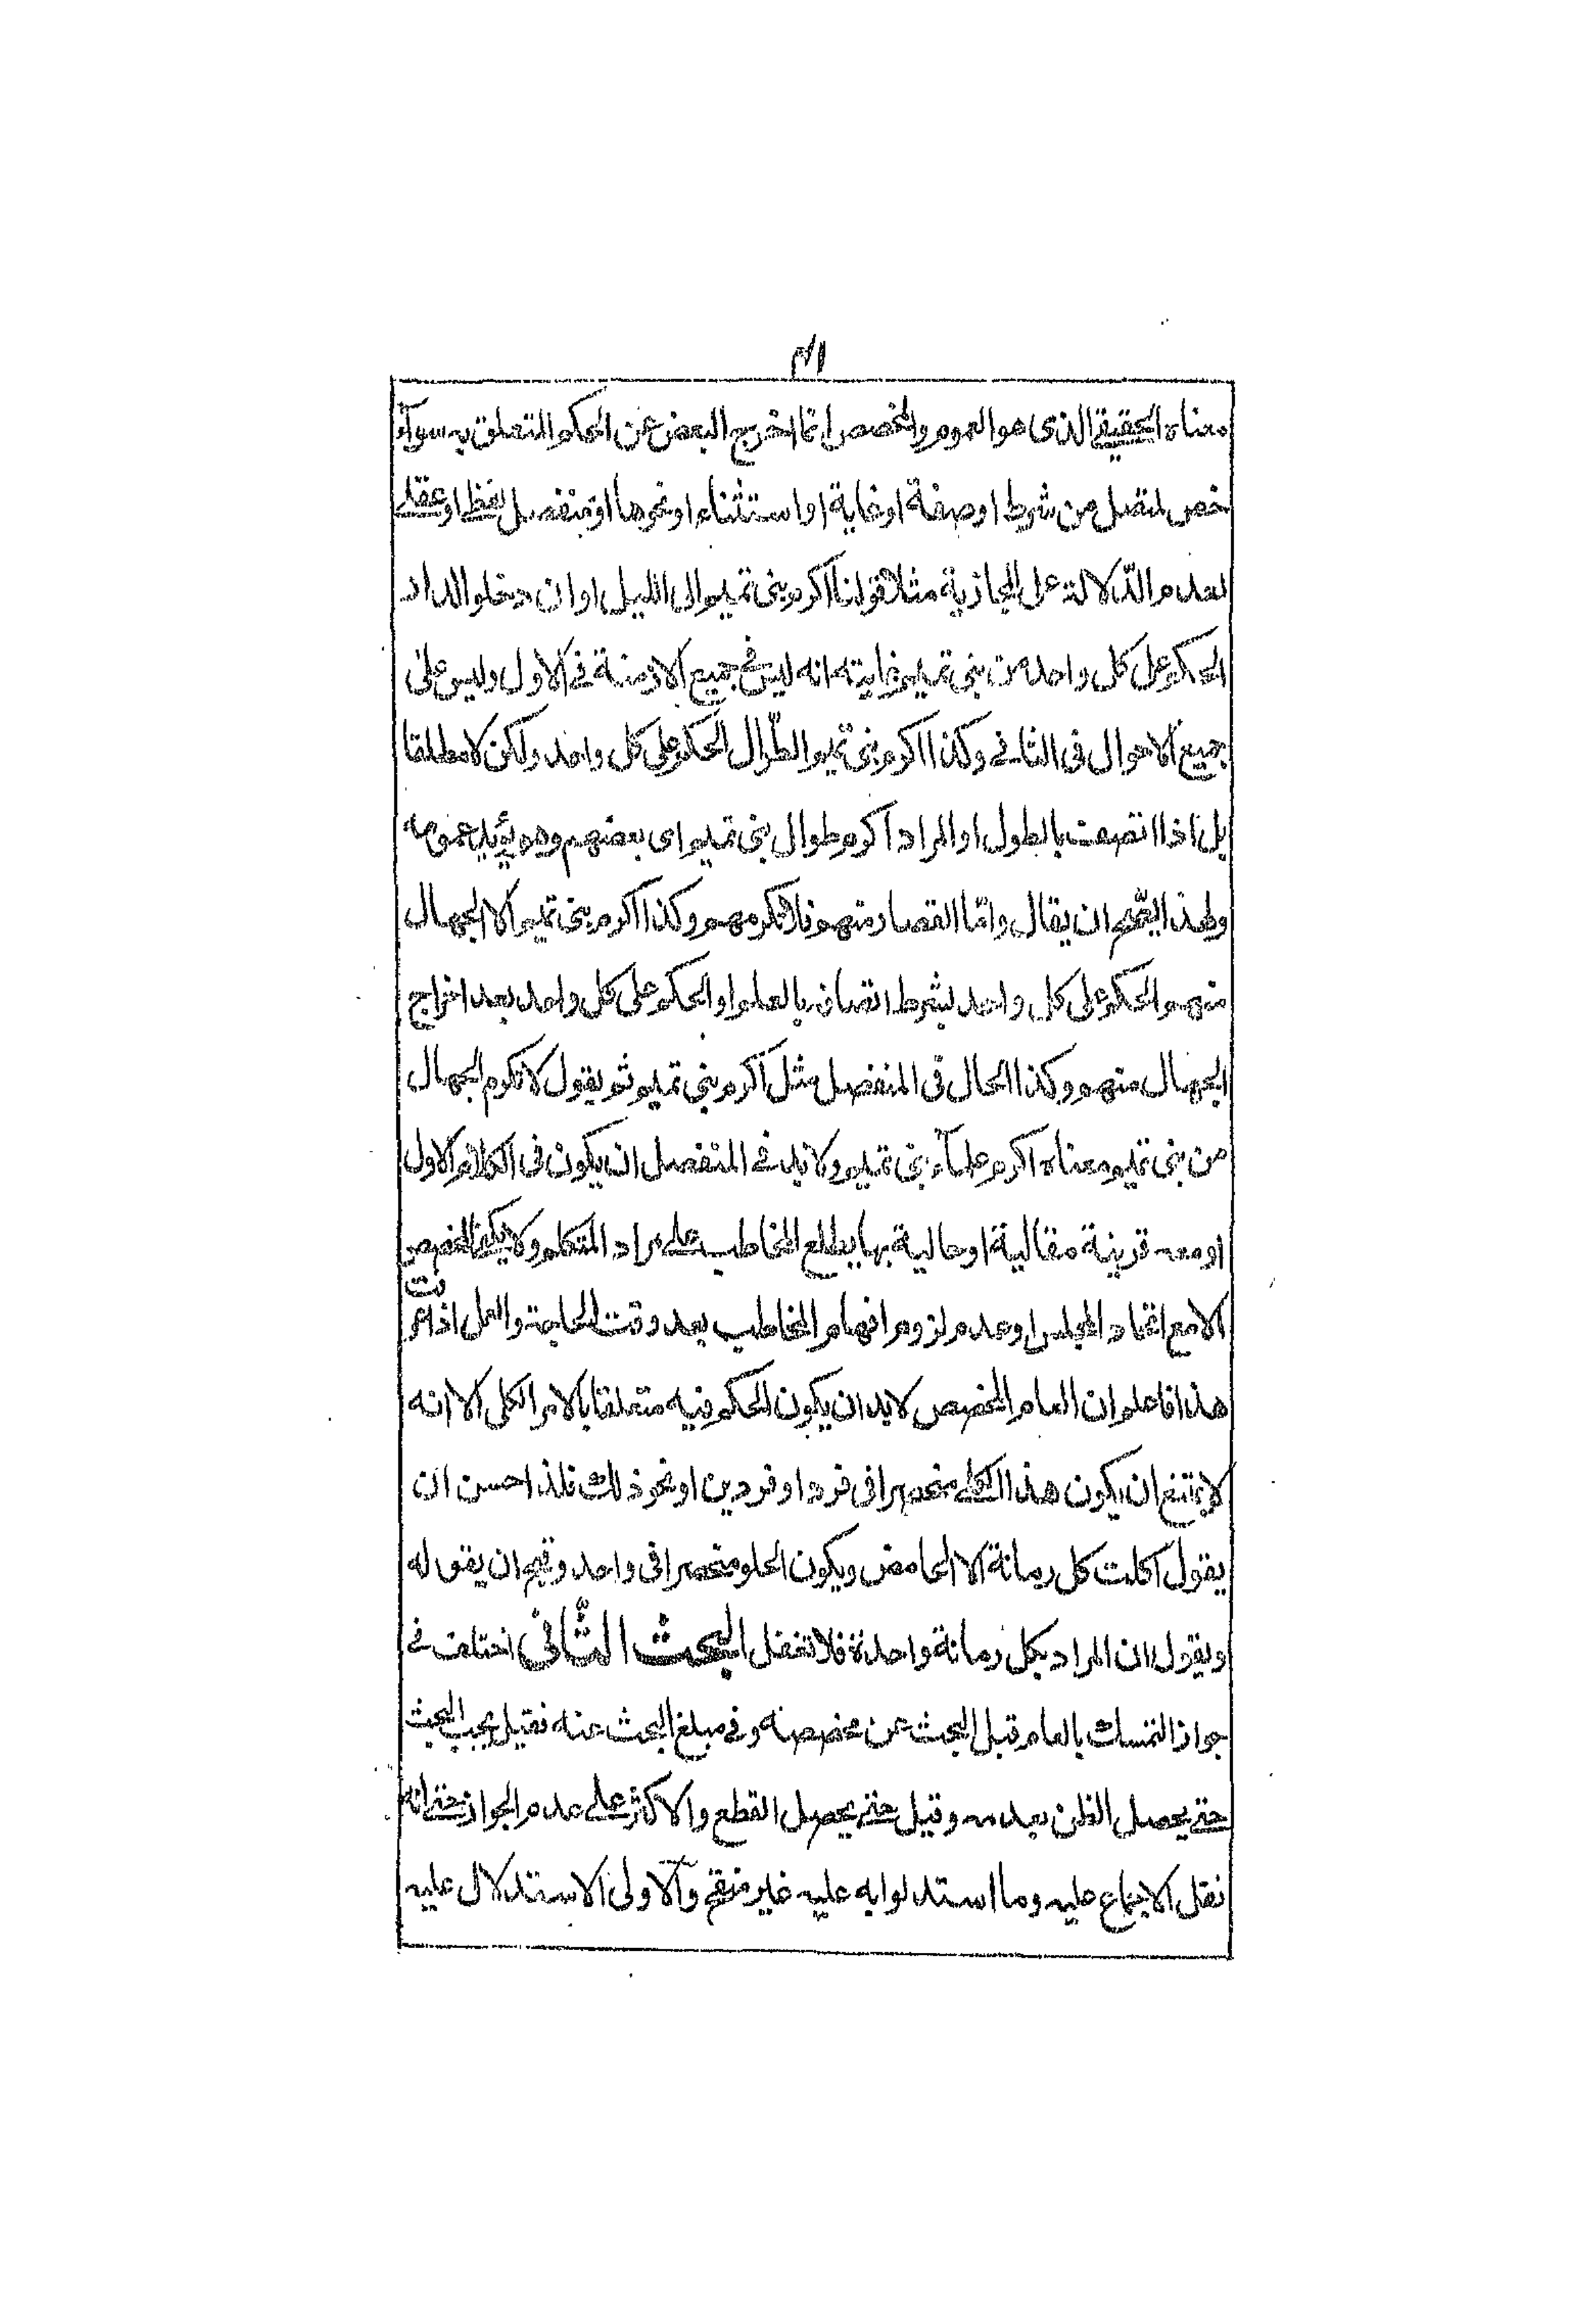 معناه الحقيقي الذى هو العموم والمخصص انما اخرج البعض عن الحكم المتعلق به سوآء
خص بمتصل من شرط او صفة او غاية او استثناء او نحوها او بمنفصل لفظي او عقلي
لعدم الدّلالة على المجازية مثلا قولنا اكرم بنى تميم الى الليل او ان دخلوا الدار
الحكم على كل واحد من بنى تميم غايته انه ليس في جميع الازمنة في الاول وليس على
جميع الاحوال فى الثاني وكذا اكرم بنى تميم الطّوال الحكم على كل واحد ولكن لا مطلقا
بل اذا اتصف بالطول او المراد اكرم طوال بنى تميم اى بعضهم وهو يؤيد عمومه
ولهذا يصّح ان يقال وامّا القصار منهم فلا تكرمهم وكذا اكرم بنى تميم الا الجهال
منهم والحكم على كل واحد بشرط اتصافه بالعلم او الحكم على كل واحد بعد اخراج
الجهال منهم وكذا الحال فى المنفصل مثل اكرم بنى تميم ثم يقول لا تكرم الجهال
من بنى تميم معناه اكرم علمآء بنى تميم ولا بد في المنفصل ان يكون فى الكلام الاول
او معه قرينة مقالية او حالية بها يطلع المخاطب على مراد المتكلم ولا يكفي المخصص
الا مع اتحاد المجلس او عدم لزوم افهام المخاطب بعد وقت الحاجة والعمل اذا عرفت
هذا فاعلم ان العام المخصص لا بد ان يكون الحكم فيه متعلقا بالامر الكلى الا انه
لا يمتنع ان يكون هذا الكلي منحصرا فى فرد او فردين او نحو ذلك فلذا حسن ان
يقول اكلت كل رمانة الا الحامض ويكون الحلو منحصرا فى واحد وقبح ان يقوله
ويقول ان المراد بكل رمانة واحدة فلا تغفل البحث الثّانى اختلف في
جواز التمسك بالعام قبل البحث عن مخصصه وفي مبلغ البحث عنه فقيل يجب البحث
حتى يحصل الظن بعدمه وقيل حتى يحصل القطع والاكثر على عدم الجواز حتى انه
نقل الاجماع عليه وما استدلوا به عليه غير منقح والاولى الاستدلال عليه